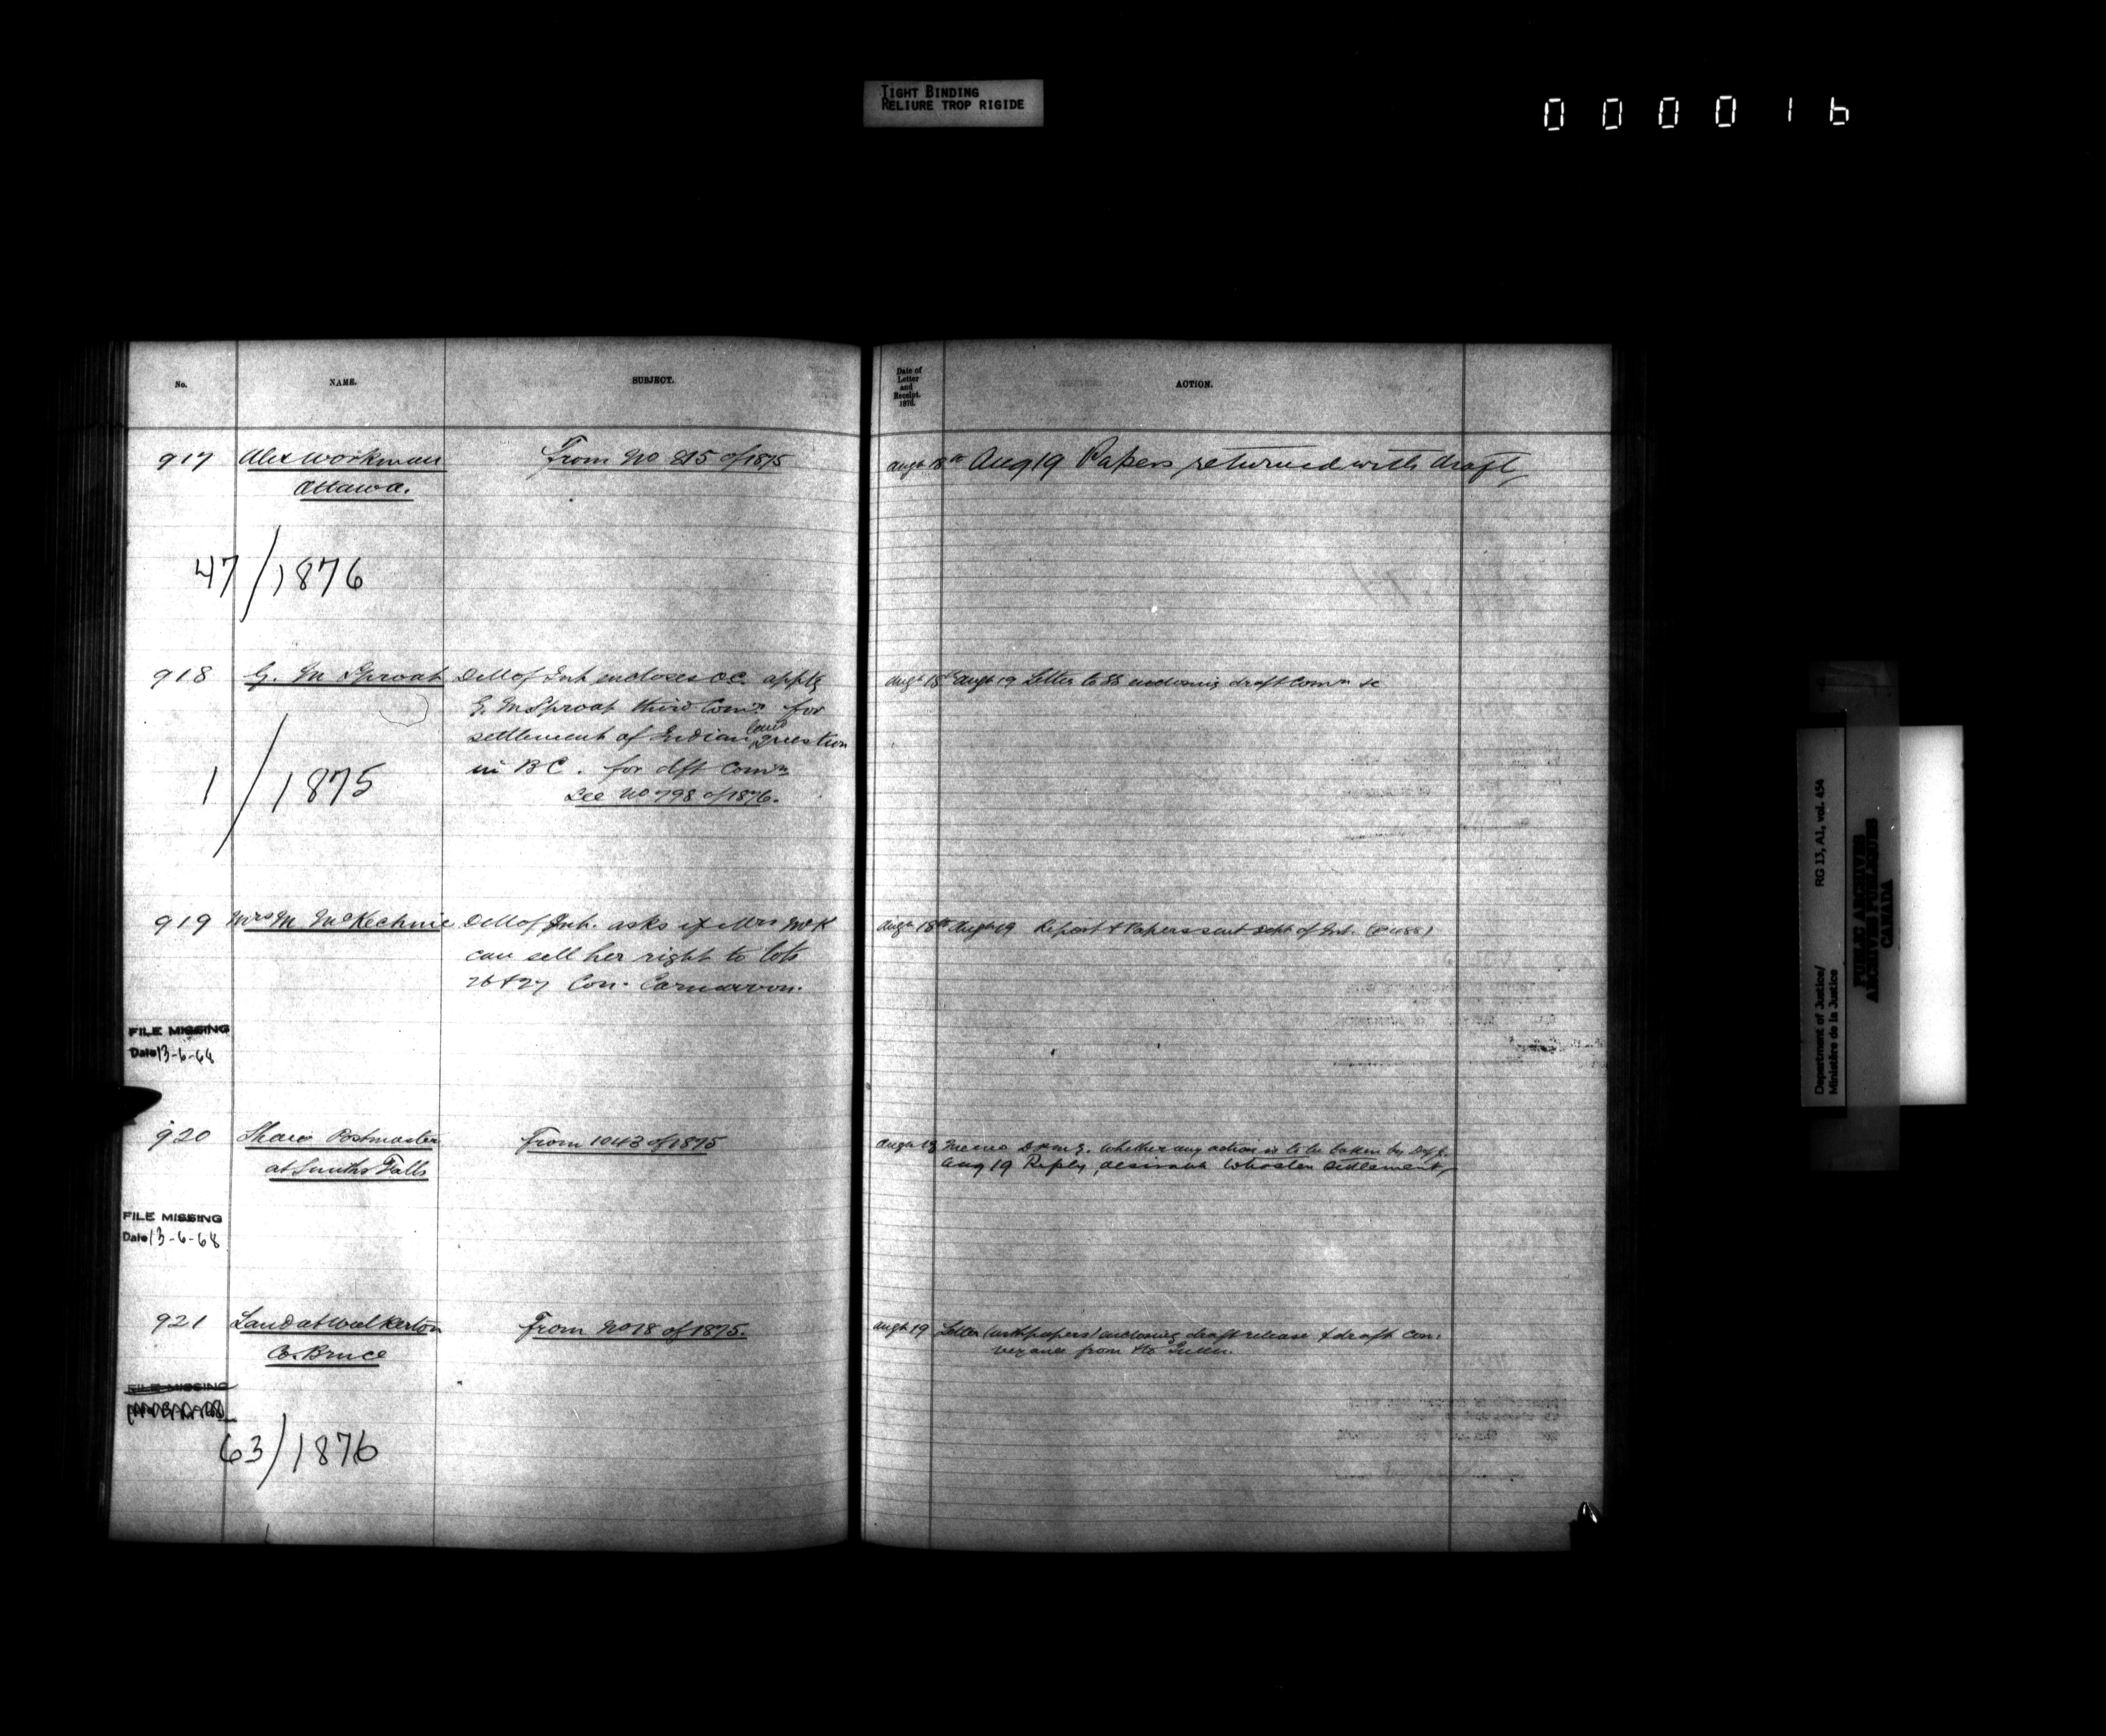 TIGHT BINDING
RELIURE TROP RIGIDE
0 0 0 0 1 6
No. NAME. SUBJECT.
Date of
Letter
and
Receipt.
1876.
ACTION.
917 Alex Workman From No 815 of 1875
Ottawa.
Augt 18th Aug 19 Papers returned with draft
47/1876
918 G. M Sproat D M of Int encloses O.C. apptg
G. M Sproat third Comr. for
settlement of Indian land question
in B C. for dft Comn
See No 798 of 1876.
Augt 18th Augt 19 Letter to SS enclosing draft Comn &c
1/1875
919 Mrs M McKechnie D M of Int. asks if Mrs McK
can sell her right to lots
26 & 27 Con. Carnarvon.
Augt 18th Augt 19 Report & Papers sent Dept of Int.
FILE MISSING
Date 13-6-68
920 Shaw Postmaster From 1043 of 1875
at Smiths Falls
Augt 18 Memo D P M G. whether any action is to be taken by Dept.
Aug 19 Reply, desirable to hasten settlement
FILE MISSING
Date 13-6-68
921 Land at Walkerton From No 18 of 1875.
Co. Bruce
Augt 19 Letter (with papers) enclosing draft release & draft con-
veyance from & to Queen.
FILE MISSING
63/1876
Department of Justice/
Ministère de la Justice
RG 13, A1, vol. 454
PUBLIC ARCHIVES
ARCHIVES PUBLIQUES
CANADA